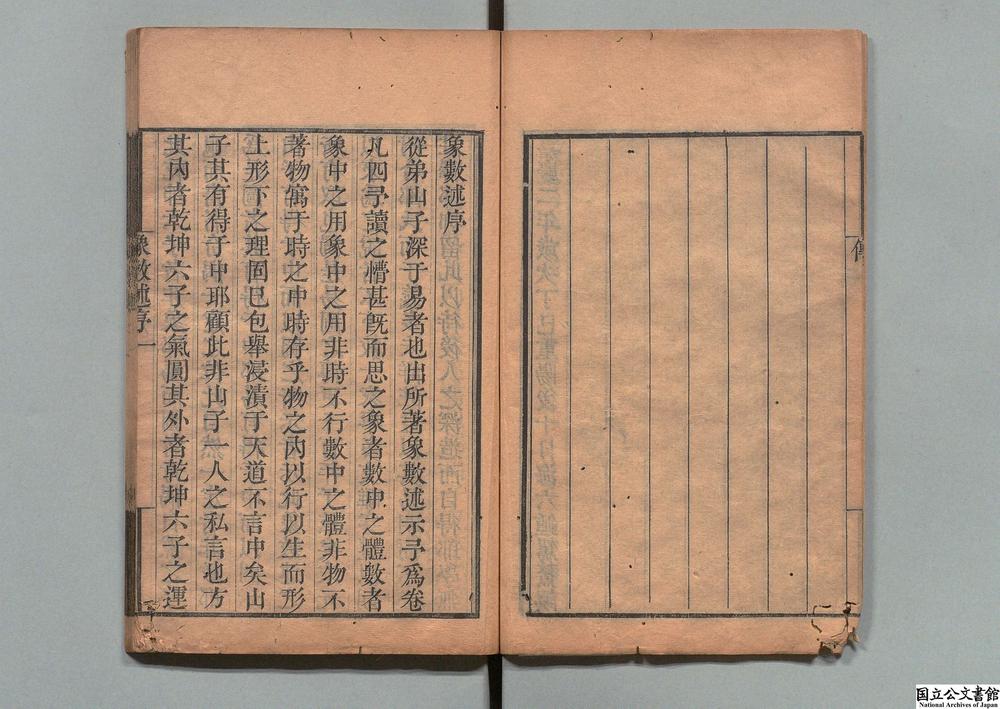 傳
象數述序
從弟山子深于易者也出所著象數述示予爲卷
凡四予讀之懵甚旣而思之象者數中之體數者
象中之用象中之用非時不行數中之體非物不
著物寓于時之中時存乎物之內以行以生而形
上形下之理固已包舉浸漬于天道不言中矣山
子其有得于中耶顧此非山子一人之私言也方
其內者乾坤六子之氣圓其外者乾坤六子之運
象數述序 一
国立公文書館
National Archives of Japan